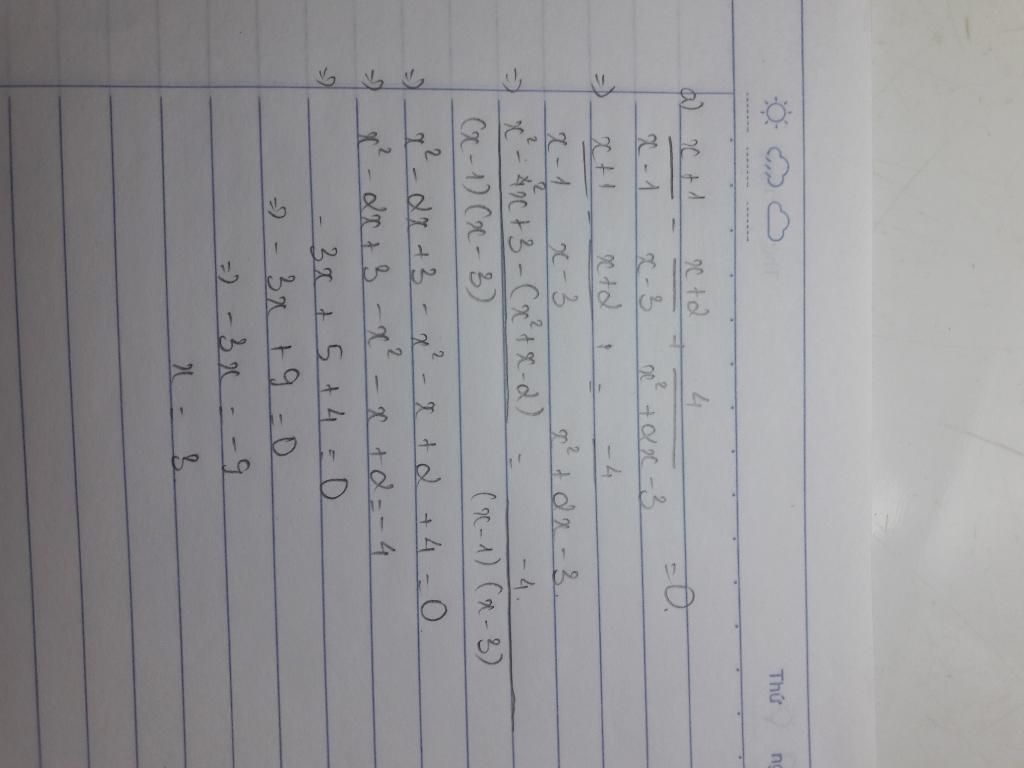 Thứ
a) x+1/x-1 - x+2/x-3 + 4/x²+2x-3 = 0.
=) x+1/x-1 - x+2/x-3 = -4/x²+2x-3.
=) x²-2x+3-(x²+x-2)/(x-1)(x-3) = -4./(x-1)(x-3)
=) x²-2x+3-x²-x+2+4=0.
=) x²-2x+3-x²-x+2=-4
=) -3x+5+4=0
=) -3x+9=0
=) -3x=-9
x=3.